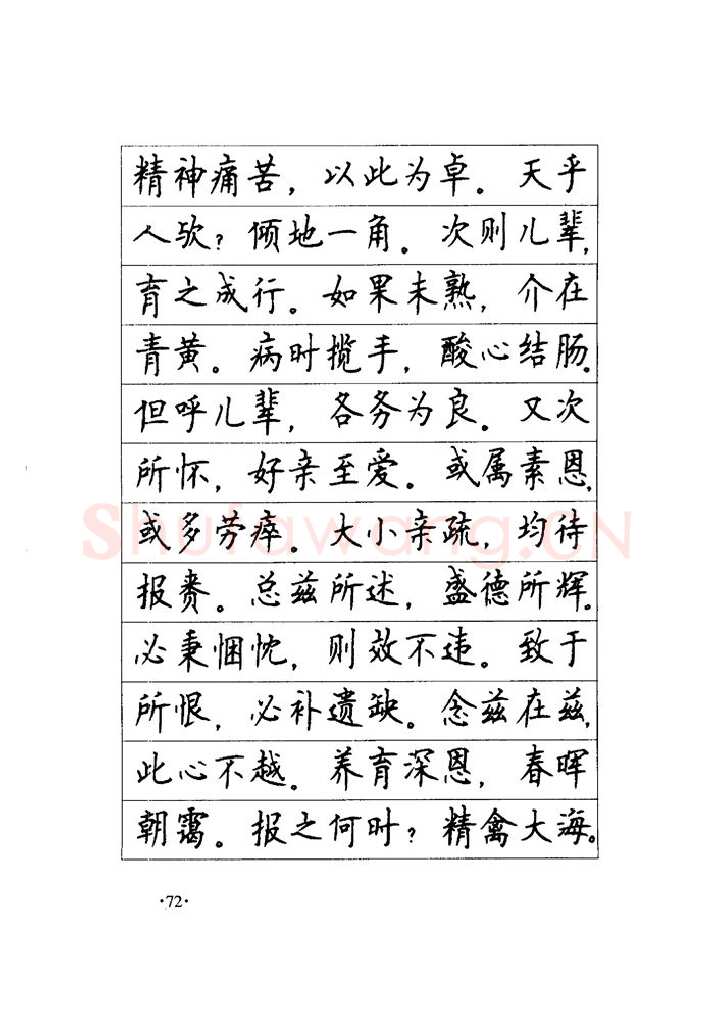 精神痛苦，以此为卓。天乎
人欤？倾地一角。次则儿辈，
育之成行。如果未熟，介在
青黄。病时揽手，酸心结肠。
但呼儿辈，各务为良。又次
所怀，好亲至爱。或属素恩，
或多劳瘁。大小亲疏，均待
报赉。总兹所述，盛德所辉。
必秉悃忱，则效不违。致于
所恨，必补遗缺。念兹在兹，
此心不越。养育深恩，春晖
朝霭。报之何时？精禽大海。
Shufawang.CN
·72·